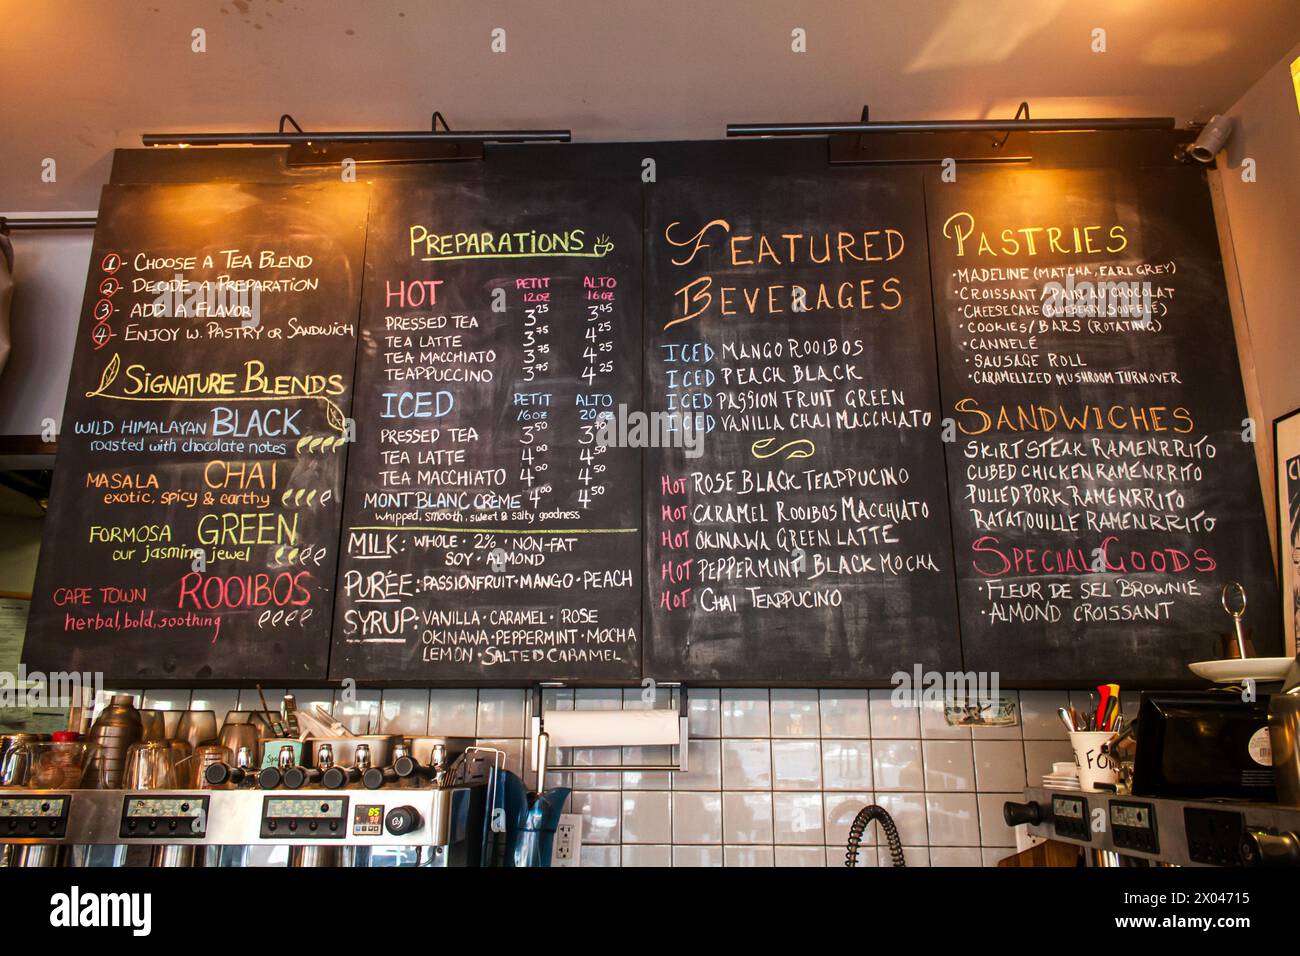 1 - CHOOSE A TEA BLEND
2 - DECIDE A PREPARATION
3 - ADD A FLAVOR
4 - ENJOY W. PASTRY OR SANDWICH
SIGNATURE BLENDS
WILD HIMALAYAN BLACK
roasted with chocolate notes
MASALA CHAI
exotic, spicy & earthy
FORMOSA GREEN
our jasmine jewel
CAPE TOWN ROOIBOS
herbal, bold, soothing
PREPARATIONS
HOT PETIT 12oz ALTO 16oz
PRESSED TEA 3.25 3.45
TEA LATTE 3.75 4.25
TEA MACCHIATO 3.75 4.25
TEAPPUCCINO 3.75 4.25
ICED PETIT 16oz ALTO 20oz
PRESSED TEA 3.50 3.70
TEA LATTE 4.00 4.50
TEA MACCHIATO 4.00 4.50
MONT BLANC CRÈME 4.00 4.50
whipped, smooth, sweet & salty goodness
MILK: WHOLE · 2% · NON-FAT
SOY · ALMOND
PURÉE: PASSIONFRUIT · MANGO · PEACH
SYRUP: VANILLA · CARAMEL · ROSE
OKINAWA · PEPPERMINT · MOCHA
LEMON · SALTED CARAMEL
FEATURED
BEVERAGES
ICED MANGO ROOIBOS
ICED PEACH BLACK
ICED PASSION FRUIT GREEN
ICED VANILLA CHAI MACCHIATO
HOT ROSE BLACK TEAPPUCINO
HOT CARAMEL ROOIBOS MACCHIATO
HOT OKINAWA GREEN LATTE
HOT PEPPERMINT BLACK MOCHA
HOT CHAI TEAPPUCINO
PASTRIES
· MADELINE (MATCHA, EARL GREY)
· CROISSANT / PAIN AU CHOCOLAT
· CHEESECAKE (BLUEBERRY, SOUFFLE)
· COOKIES / BARS (ROTATING)
· CANNELÉ
· SAUSAGE ROLL
· CARAMELIZED MUSHROOM TURNOVER
SANDWICHES
SKIRT STEAK RAMENRRITO
CUBED CHICKEN RAMENRRITO
PULLED PORK RAMENRRITO
RATATOUILLE RAMENRRITO
SPECIAL GOODS
· FLEUR DE SEL BROWNIE
· ALMOND CROISSANT
alamy
Image ID: 2X04715
www.alamy.com